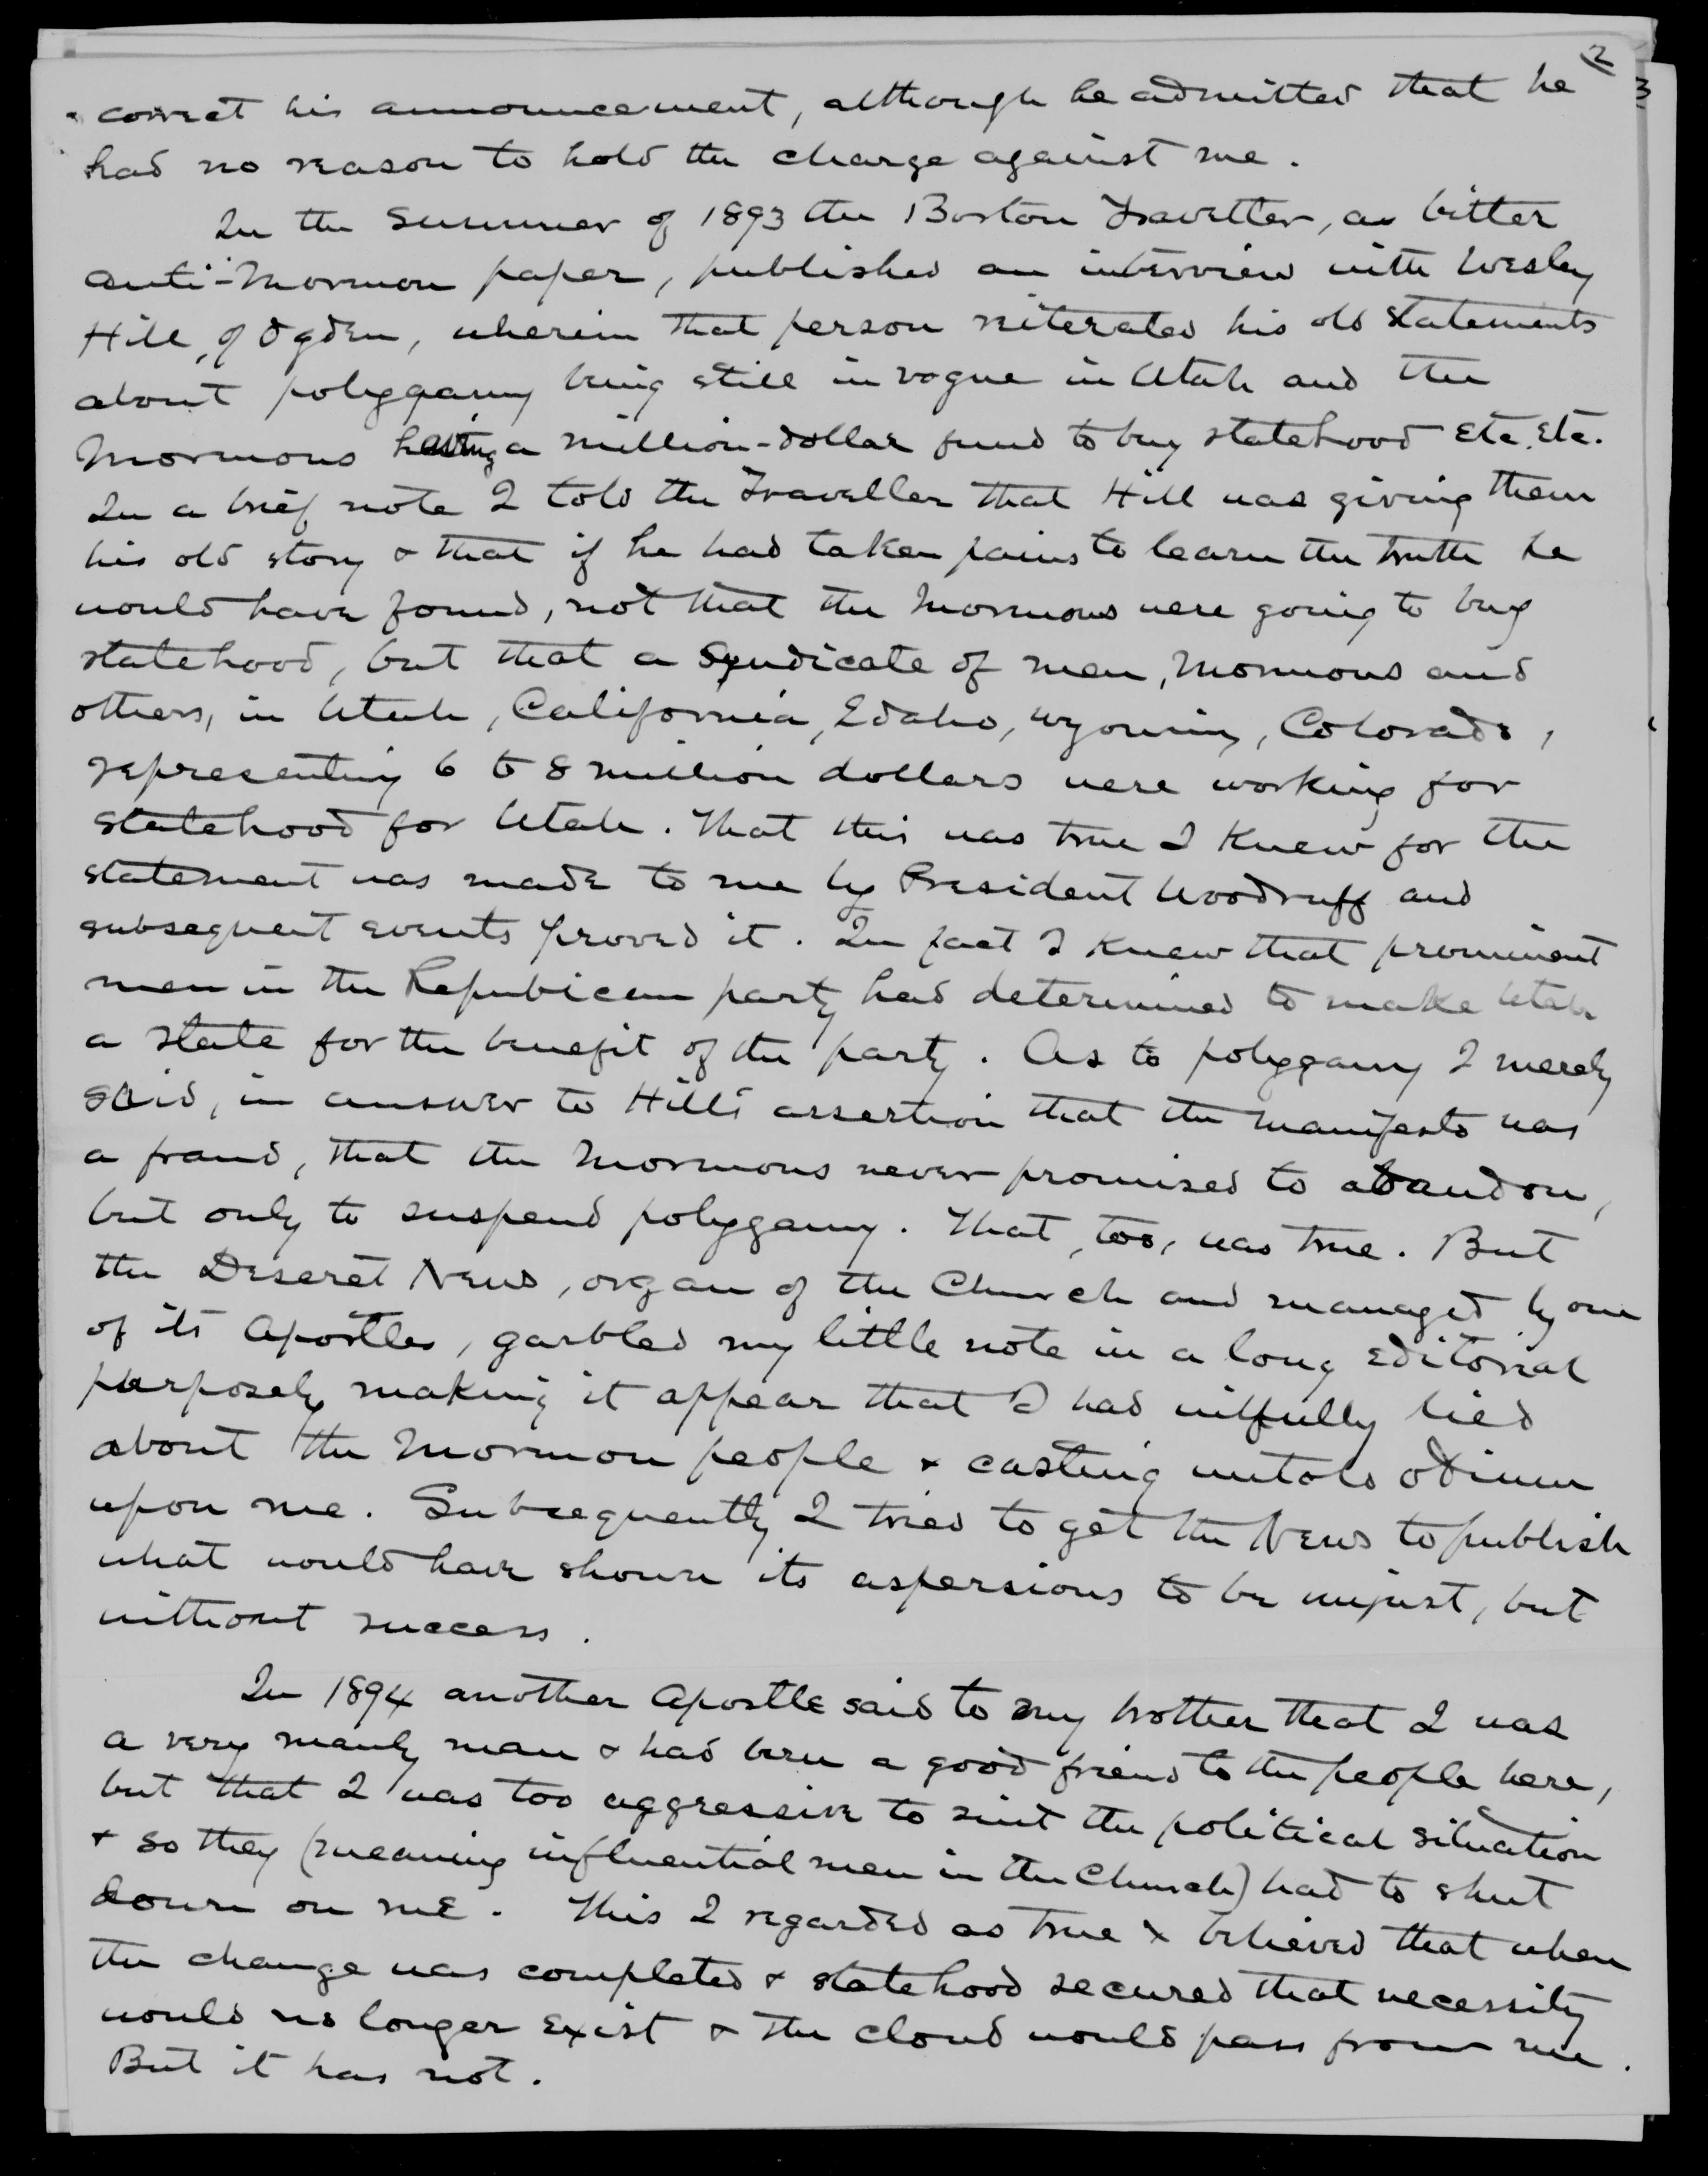 2
correct his announcement, although he admitted that he
had no reason to hold the charge against me.
In the summer of 1893 the Boston Traveller, a bitter
anti-Mormon paper, published an interview with Wesley
Hill, of Ogden, wherein that person reiterated his old statements
about polygamy being still in vogue in Utah and the
Mormons having a million-dollar fund to buy statehood Etc. Etc.
In a brief note I told the Traveller that Hill was giving them
his old story & that if he had taken pains to learn the truth he
would have found, not that the Mormons were going to buy
statehood, but that a Syndicate of men, Mormons and
others, in Utah, California, Idaho, Wyoming, Colorado,
representing 6 to 8 million dollars were working for
statehood for Utah. That this was true I knew for the
statement was made to me by President Woodruff and
subsequent events proved it. In fact I knew that prominent
men in the Repubican party had determined to make Utah
a state for the benefit of the party. As to polygamy I merely
said, in answer to Hill's assertion that the manifesto was
a fraud, that the Mormons never promised to abandon,
but only to suspend polygamy. That, too, was true. But
the Deseret News, organ of the Church and managed by one
of its Apostles, garbled my little note in a long Editorial
purposely making it appear that I had wilfully lied
about the Mormon people & casting untold odium
upon me. Subsequently I tried to get the News to publish
what would have shown its aspersions to be unjust, but
without success.
In 1894 another Apostle said to my brother that I was
a very manly man & had been a good friend to the people here,
but that I was too aggressive to suit the political situation
& so they (meaning influential men in the Church) had to shut
down on me. This I regarded as true & believed that when
the change was completed & statehood secured that necessity
would no longer Exist & the cloud would pass from me.
But it has not.